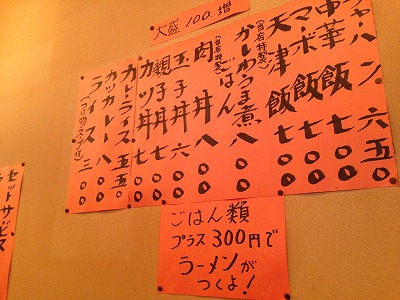 大盛 100.増
チャーハン 六五〇
中華飯 七〇〇
マーボ飯 七〇〇
天津飯 七〇〇
(当店特製)
かしわうま煮ごはん 八〇〇
(当店特製)
肉丼 八〇〇
玉子丼 六〇〇
親子丼 七〇〇
カツ丼 七〇〇
カレーライス 五五〇
カツカレー 八〇〇
ライス 三〇〇
ごはん類
プラス300円で
ラーメンが
つくよ!
セットサービス